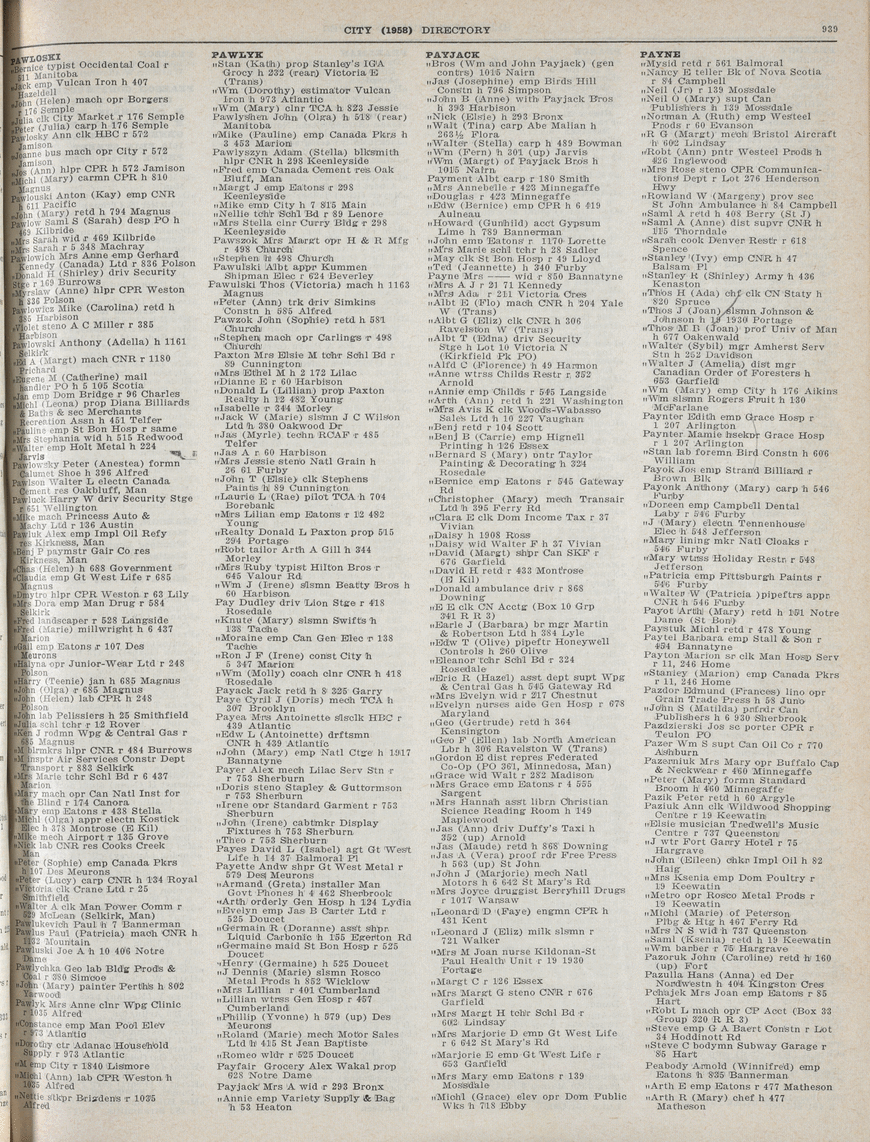 CITY (1958) DIRECTORY
939
PAWLOSKI
„Bernice typist Occidental Coal r
511 Manitoba
„Jack emp Vulcan Iron h 407
Hazeldell
„John (Helen) mach opr Borgers
r 176 Semple
„Julia clk City Market r 176 Semple
„Peter (Julia) carp h 176 Semple
Pawlosky Ann clk HBC r 572
Jamison
„Jeanne bus mach opr City r 572
Jamison
„Jos (Ann) hlpr CPR h 572 Jamison
„Michl (Mary) carmn CPR h 810
Magnus
Pawlouski Anton (Kay) emp CNR
h 611 Pacific
„John (Mary) retd h 794 Magnus
Pawlow Saml S (Sarah) desp PO h
469 Kilbride
„Mrs Sarah wid r 469 Kilbride
„Mrs Sarah r 5 348 Machray
Pawlowich Mrs Anne emp Gerhard
Kennedy (Canada) Ltd r 836 Polson
„Donald H (Shirley) driv Security
Stge r 169 Burrows
„Myrslaw (Anne) hlpr CPR Weston
h 836 Polson
Pawlowicz Mike (Carolina) retd h
385 Harbison
„Violet steno A C Miller r 385
Harbison
Pawlowski Anthony (Adella) h 1161
Selkirk
„Ed A (Margt) mach CNR r 1180
Prichard
„Eugene M (Catherine) mail
handler PO h 5 105 Scotia
„Jan emp Dom Bridge r 96 Charles
„Michl (Leona) prop Diana Billiards
& Baths & sec Merchants
Recreation Assn h 451 Telfer
„Pauline emp St Bon Hosp r same
„Mrs Stephania wid h 515 Redwood
„Walter emp Holt Metal h 224
Jarvis
Pawlowsky Peter (Anestea) formn
Calumet Shoe h 396 Alfred
Pawlson Walter L electn Canada
Cement res Oakbluff, Man
Pawluck Harry W driv Security Stge
r 651 Wellington
„Mike mach Princess Auto &
Machy Ltd r 136 Austin
Pawluk Alex emp Impl Oil Refy
res Kirkness, Man
„Benj P paymstr Gair Co res
Kirkness, Man
„Chas (Helen) h 688 Government
„Claudia emp Gt West Life r 685
Magnus
„Dmytro hlpr CPR Weston r 63 Lily
„Mrs Dora emp Man Drug r 584
Selkirk
„Fred landscaper r 528 Langside
„Fred (Marie) millwright h 6 437
Marion
„Gail emp Eatons r 107 Des
Meurons
„Halyna opr Junior-Wear Ltd r 248
Polson
„Harry (Teenie) jan h 685 Magnus
„John (Olga) r 685 Magnus
„John (Helen) lab CPR h 248
Polson
„John lab Pelissiers h 25 Smithfield
„Julia schl tchr r 12 Rover
„Ken J rodmn Wpg & Central Gas r
685 Magnus
„M blrmkrs hlpr CNR r 484 Burrows
„M insptr Air Services Constr Dept
Transport r 883 Selkirk
„Mrs Marie tchr Schl Bd r 6 437
Marion
„Mary mach opr Can Natl Inst for
the Blind r 174 Canora
„Mary emp Eatons r 438 Stella
„Michl (Olga) appr electn Kostick
Elec h 378 Montrose (E Kil)
„Mike mech Airport r 135 Grove
„Nick lab CNR res Cooks Creek
Man
„Peter (Sophie) emp Canada Pkrs
h 107 Des Meurons
„Peter (Lucy) carp CNR h 134 Royal
„Victoria clk Crane Ltd r 25
Smithfield
„Walter A clk Man Power Comm r
529 McLean (Selkirk, Man)
Pawlukevich Paul h 7 Bannerman
Pawlus Paul (Patricia) mach CNR h
1132 Mountain
Pawluski Joe A h 10 406 Notre
Dame
Pawlychka Geo lab Bldg Prods &
Coal r 380 Simcoe
„John (Mary) painter Perths h 802
Yarwood
Pawlyk Mrs Anne clnr Wpg Clinic
r 1035 Alfred
„Constance emp Man Pool Elev
r 973 Atlantic
„Dorothy ctr Adanac Household
Supply r 973 Atlantic
„M emp City r 1840 Lismore
„Michl (Ann) lab CPR Weston h
1035 Alfred
„Nettie stkpr Brigdens r 1035
Alfred
PAWLYK
„Stan (Kath) prop Stanley's IGA
Grocy h 232 (rear) Victoria E
(Trans)
„Wm (Dorothy) estimator Vulcan
Iron h 973 Atlantic
„Wm (Mary) clnr TCA h 823 Jessie
Pawlyshen John (Olga) h 518 (rear)
Manitoba
„Mike (Pauline) emp Canada Pkrs h
3 453 Marion
Pawlyszyn Adam (Stella) blksmith
hlpr CNR r 298 Keenleyside
„Fred emp Canada Cement res Oak
Bluff, Man
„Margt J emp Eatons r 298
Keenleyside
„Mike emp City h 7 815 Main
„Nellie tchr Schl Bd r 89 Lenore
„Mrs Stella clnr Curry Bldg r 298
Keenleyside
Pawszok Mrs Margt opr H & R Mfg
r 498 Church
„Stephen h 498 Church
Pawulski Albt appr Kummen
Shipman Elec r 624 Beverley
Pawulski Thos (Victoria) mach h 1163
Magnus
„Peter (Ann) trk driv Simkins
Constn h 585 Alfred
Pawzok John (Sophie) retd h 581
Church
„Stephen mach opr Carlings r 498
Church
Paxton Mrs Elsie M tchr Schl Bd r
89 Cunnington
„Mrs Ethel M h 2 172 Lilac
„Dianne E r 60 Harbison
„Donald L (Lillian) prop Paxton
Realty h 12 482 Young
„Isabelle r 344 Morley
„Jack W (Marie) slsmn J C Wilson
Ltd h 380 Oakwood Dr
„Jas (Myrle) techn RCAF r 485
Telfer
„Jas A r 60 Harbison
„Mrs Jessie steno Natl Grain h
26 61 Furby
„John T (Elsie) clk Stephens
Paints h 89 Cunnington
„Laurie L (Rae) pilot TCA h 704
Borebank
„Mrs Lilian emp Eatons r 12 482
Young
„Realty Donald L Paxton prop 515
294 Portage
„Robt tailor Arth A Gill h 344
Morley
„Mrs Ruby typist Hilton Bros r
645 Valour Rd
„Wm J (Irene) slsmn Beatty Bros h
60 Harbison
Pay Dudley driv Lion Stge r 418
Rosedale
„Knute (Mary) slsmn Swifts h
138 Tache
„Moraine emp Can Gen Elec r 138
Tache
„Ron J F (Irene) const City h
5 347 Marion
„Wm (Molly) coach clnr CNR h 418
Rosedale
Payack Jack retd h 8 325 Garry
Paye Cyril J (Doris) mech TCA h
307 Brooklyn
Payea Mrs Antoinette slsclk HBC r
439 Atlantic
„Edw L (Antoinette) drftsmn
CNR h 439 Atlantic
„John (Mary) emp Natl Ctge h 1917
Bannatyne
Payer Alex mech Lilac Serv Stn r
r 753 Sherburn
„Doris steno Stapley & Guttormson
r 753 Sherburn
„Irene opr Standard Garment r 753
Sherburn
„John (Irene) cabtmkr Display
Fixtures h 753 Sherburn
„Theo r 753 Sherburn
Payes David L (Isabel) agt Gt West
Life h 14 37 Balmoral Pl
Payette Andw shpr Gt West Metal r
579 Des Meurons
„Armand (Greta) installer Man
Govt Phones h 4 462 Sherbrook
„Arth orderly Gen Hosp h 124 Lydia
„Evelyn emp Jas B Carter Ltd r
525 Doucet
„Germain R (Doranne) asst shpr
Liquid Carbonic h 155 Egerton Rd
„Germaine maid St Bon Hosp r 525
Doucet
„Henry (Germaine) h 525 Doucet
„J Dennis (Marie) slsmn Rosco
Metal Prods h 852 Wicklow
„Mrs Lillian r 401 Cumberland
„Lillian wtress Gen Hosp r 457
Cumberland
„Phillip (Yvonne) h 579 (up) Des
Meurons
„Roland (Marie) mech Motor Sales
Ltd h 415 St Jean Baptiste
„Romeo wldr r 525 Doucet
Payfair Grocery Alex Wakal prop
628 Notre Dame
Payjack Mrs A wid r 293 Bronx
„Annie emp Variety Supply & Bag
h 53 Heaton
PAYJACK
„Bros (Wm and John Payjack) (gen
contrs) 1015 Nairn
„Jas (Josephine) emp Birds Hill
Constn h 796 Simpson
„John B (Anne) with Payjack Bros
h 393 Harbison
„Nick (Elsie) h 293 Bronx
„Walt (Tina) carp Abe Malian h
263½ Flora
„Walter (Stella) carp h 489 Bowman
„Wm (Fern) h 301 (up) Jarvis
„Wm (Margt) of Payjack Bros h
1015 Nairn
Payment Albt carp r 180 Smith
„Mrs Annabelle r 423 Minnegaffe
„Douglas r 423 Minnegaffe
„Edw (Bernice) emp CPR h 6 419
Aulneau
„Howard (Gunhild) acct Gypsum
Lime h 789 Bannerman
„John emp Eatons r 1170 Lorette
„Mrs Marie schl tchr h 28 Sadler
„May clk St Bon Hosp r 49 Lloyd
„Ted (Jeannette) h 340 Furby
Payne Mrs —— wid r 850 Bannatyne
„Mrs A J r 21 71 Kennedy
„Mrs Ada r 211 Victoria Cres
„Albt E (Flo) mach CNR h 204 Yale
W (Trans)
„Albt G (Eliz) clk CNR h 306
Ravelston W (Trans)
„Albt T (Edna) driv Security
Stge h Lot 10 Victoria N
(Kirkfield Pk PO)
„Alfd C (Florence) h 49 Harmon
„Anne wtrss Childs Restr r 352
Arnold
„Annie emp Childs r 545 Langside
„Arth (Beth) retd h 221 Washington
„Mrs Avis K clk Woods-Wabasso
Sales Ltd h 10 227 Vaughan
„Benj retd r 104 Scott
„Benj B (Carrie) emp Hignell
Printing h 126 Essex
„Bernard S (Mary) contr Taylor
Painting & Decorating h 324
Rosedale
„Bernice emp Eatons r 545 Gateway
Rd
„Christopher (Mary) mech Transair
Ltd h 395 Ferry Rd
„Clara E clk Dom Income Tax r 37
Vivian
„Daisy h 1908 Ross
„Daisy wid Walter F h 37 Vivian
„David (Margt) shpr Can SKF r
676 Garfield
„David H retd r 433 Montrose
(E Kil)
„Donald ambulance driv r 868
Downing
„E E clk CN Acctg (Box 10 Grp
341 R R 3)
„Earle J (Barbara) br mgr Martin
& Robertson Ltd h 384 Lyle
„Edw T (Olive) pipeftr Honeywell
Controls h 260 Olive
„Eleanor tchr Schl Bd r 324
Rosedale
„Eric R (Hazel) asst dept supt Wpg
& Central Gas h 545 Gateway Rd
„Mrs Evelyn wid r 217 Chestnut
„Evelyn nurses aide Gen Hosp r 678
Maryland
„Geo (Gertrude) retd h 364
Kensington
„Geo F (Ellen) lab North American
Lbr h 306 Ravelston W (Trans)
„Gordon E dist repres Federated
Co-Op (PO 361, Minnedosa, Man)
„Grace wid Walt r 282 Madison
„Mrs Grace emp Eatons r 4 555
Sargent
„Mrs Hannah asst librn Christian
Science Reading Room h 149
Maplewood
„Jas (Ann) driv Duffy's Taxi h
352 (up) Arnold
„Jas (Maude) retd h 868 Downing
„Jas A (Vera) proof rdr Free Press
h 563 (up) St John
„John J (Marjorie) mech Natl
Motors h 6 642 St Mary's Rd
„Mrs Joyce druggist Berryhill Drugs
r 1017 Warsaw
„Leonard D (Faye) engmn CPR h
431 Kent
„Leonard J (Eliz) milk slsmn r
721 Walker
„Mrs M Joan nurse Kildonan-St
Paul Health Unit r 19 1930
Portage
„Margt C r 126 Essex
„Mrs Margt G steno CNR r 676
Garfield
„Mrs Margt H tchr Schl Bd r
602 Lindsay
„Mrs Marjorie D emp Gt West Life
r 6 642 St Mary's Rd
„Marjorie E emp Gt West Life r
653 Garfield
„Mrs Mary emp Eatons r 139
Mossdale
„Michl (Grace) elev opr Dom Public
Wks h 718 Ebby
PAYNE
„Mysid retd r 561 Balmoral
„Nancy E teller Bk of Nova Scotia
r 84 Campbell
„Neil (Jr) r 139 Mossdale
„Neil O (Mary) supt Can
Publishers h 139 Mossdale
„Norman A (Ruth) emp Westeel
Prods r 60 Evanson
„R G (Margt) mech Bristol Aircraft
h 602 Lindsay
„Robt (Ann) pntr Westeel Prods h
426 Inglewood
„Mrs Rose steno CPR Communica-
tions Dept r Lot 276 Henderson
Hwy
„Rowland W (Margery) prov sec
St John Ambulance h 84 Campbell
„Saml A retd h 408 Berry (St J)
„Saml A (Anne) dist supvr CNR h
115 Thorndale
„Sarah cook Denver Restr r 618
Spence
„Stanley (Ivy) emp CNR h 47
Balsam Pl
„Stanley R (Shirley) Army h 436
Kenaston
„Thos H (Ada) chf clk CN Staty h
820 Spruce
„Thos J (Joan) slsmn Johnson &
Johnson h 19 1930 Portage
„Thos M B (Joan) prof Univ of Man
h 677 Oakenwald
„Walter (Sybil) mgr Amherst Serv
Stn h 252 Davidson
„Walter J (Amelia) dist mgr
Canadian Order of Foresters h
653 Garfield
„Wm (Mary) emp City h 176 Aikins
„Wm slsmn Rogers Fruit h 130
McFarlane
Paynter Edith emp Grace Hosp r
1 207 Arlington
Paynter Mamie hsekpr Grace Hosp
r 1 207 Arlington
„Stan lab foremn Bird Constn h 606
William
Payok Jos emp Strand Billiard r
Brown Blk
Payonk Anthony (Mary) carp h 546
Furby
„Doreen emp Campbell Dental
Laby r 546 Furby
„J (Mary) electn Tennenhouse
Elec h 548 Jefferson
„Mary lining mkr Natl Cloaks r
546 Furby
„Mary wtrss Holiday Restr r 548
Jefferson
„Patricia emp Pittsburgh Paints r
546 Furby
„Walter W (Patricia )pipeftrs appr
CNR h 546 Furby
Payot Arth (Mary) retd h 151 Notre
Dame (St Bon)
Paystuk Michl retd r 478 Young
Paytel Barbara emp Stall & Son r
454 Bannatyne
Payton Marion sr clk Man Hosp Serv
r 11, 246 Home
„Stanley (Marion) emp Canada Pkrs
r 11, 246 Home
Pazdor Edmund (Frances) lino opr
Grain Trade Press h 58 Juno
„John S (Matilda) pnfrdr Can
Publishers h 6 930 Sherbrook
Pazdzierski Jos sc porter CPR r
Teulon PO
Pazer Wm S supt Can Oil Co r 770
Ashburn
Pazerniuk Mrs Mary opr Buffalo Cap
& Neckwear r 460 Minnegaffe
„Peter (Mary) formn Standard
Broom h 460 Minnegaffe
Pazik Peter retd h 60 Argyle
Paziuk Ann clk Wildwood Shopping
Centre r 19 Keewatin
„Elsie musician Tredwell's Music
Centre r 737 Queenston
„J wtr Fort Garry Hotel r 75
Hargrave
„John (Eileen) chkr Impl Oil h 82
Haig
„Mrs Ksenia emp Dom Poultry r
19 Keewatin
„Metro opr Rosco Metal Prods r
19 Keewatin
„Michl (Marie) of Peterson
Plbg & Htg h 467 Ferry Rd
„Mrs N S wid h 737 Queenston
„Saml (Ksenia) retd h 19 Keewatin
„Wm barber r 75 Hargrave
Pazoruk John (Caroline) retd h 160
(up) Fort
Pazulla Hans (Anna) ed Der
Nordwestn h 404 Kingston Cres
Pchajek Mrs Joan emp Eatons r 85
Hart
„Robt L mach opr CP Acct (Box 33
Group 320 R R 3)
„Steve emp G A Baert Constn r Lot
34 Hoddinott Rd
„Steve C bodymn Subway Garage r
85 Hart
Peabody Arnold (Winnifred) emp
Eatons h 835 Bannerman
„Arth E emp Eatons r 477 Matheson
„Arth R (Mary) chef h 477
Matheson